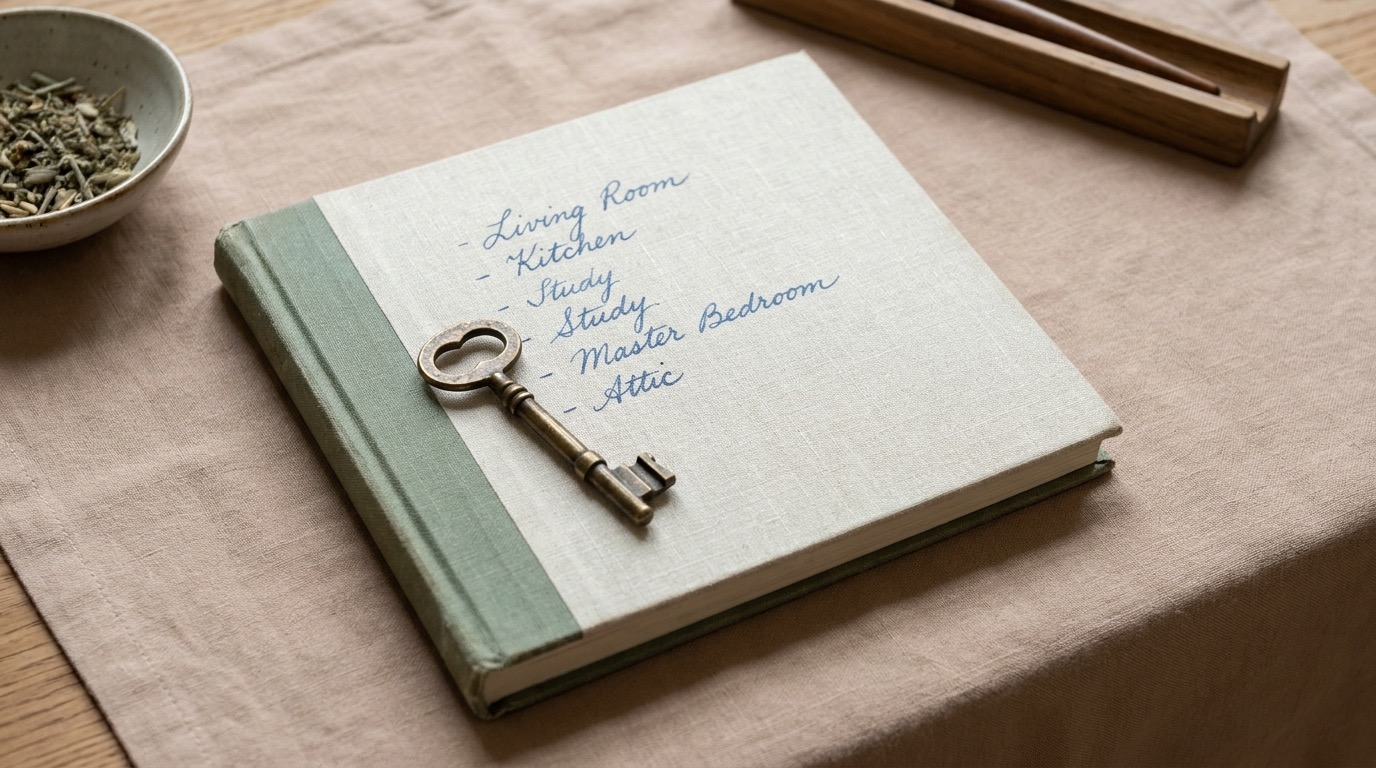 - Living Room
- Kitchen
- Study
- Study
- Master Bedroom
- Attic